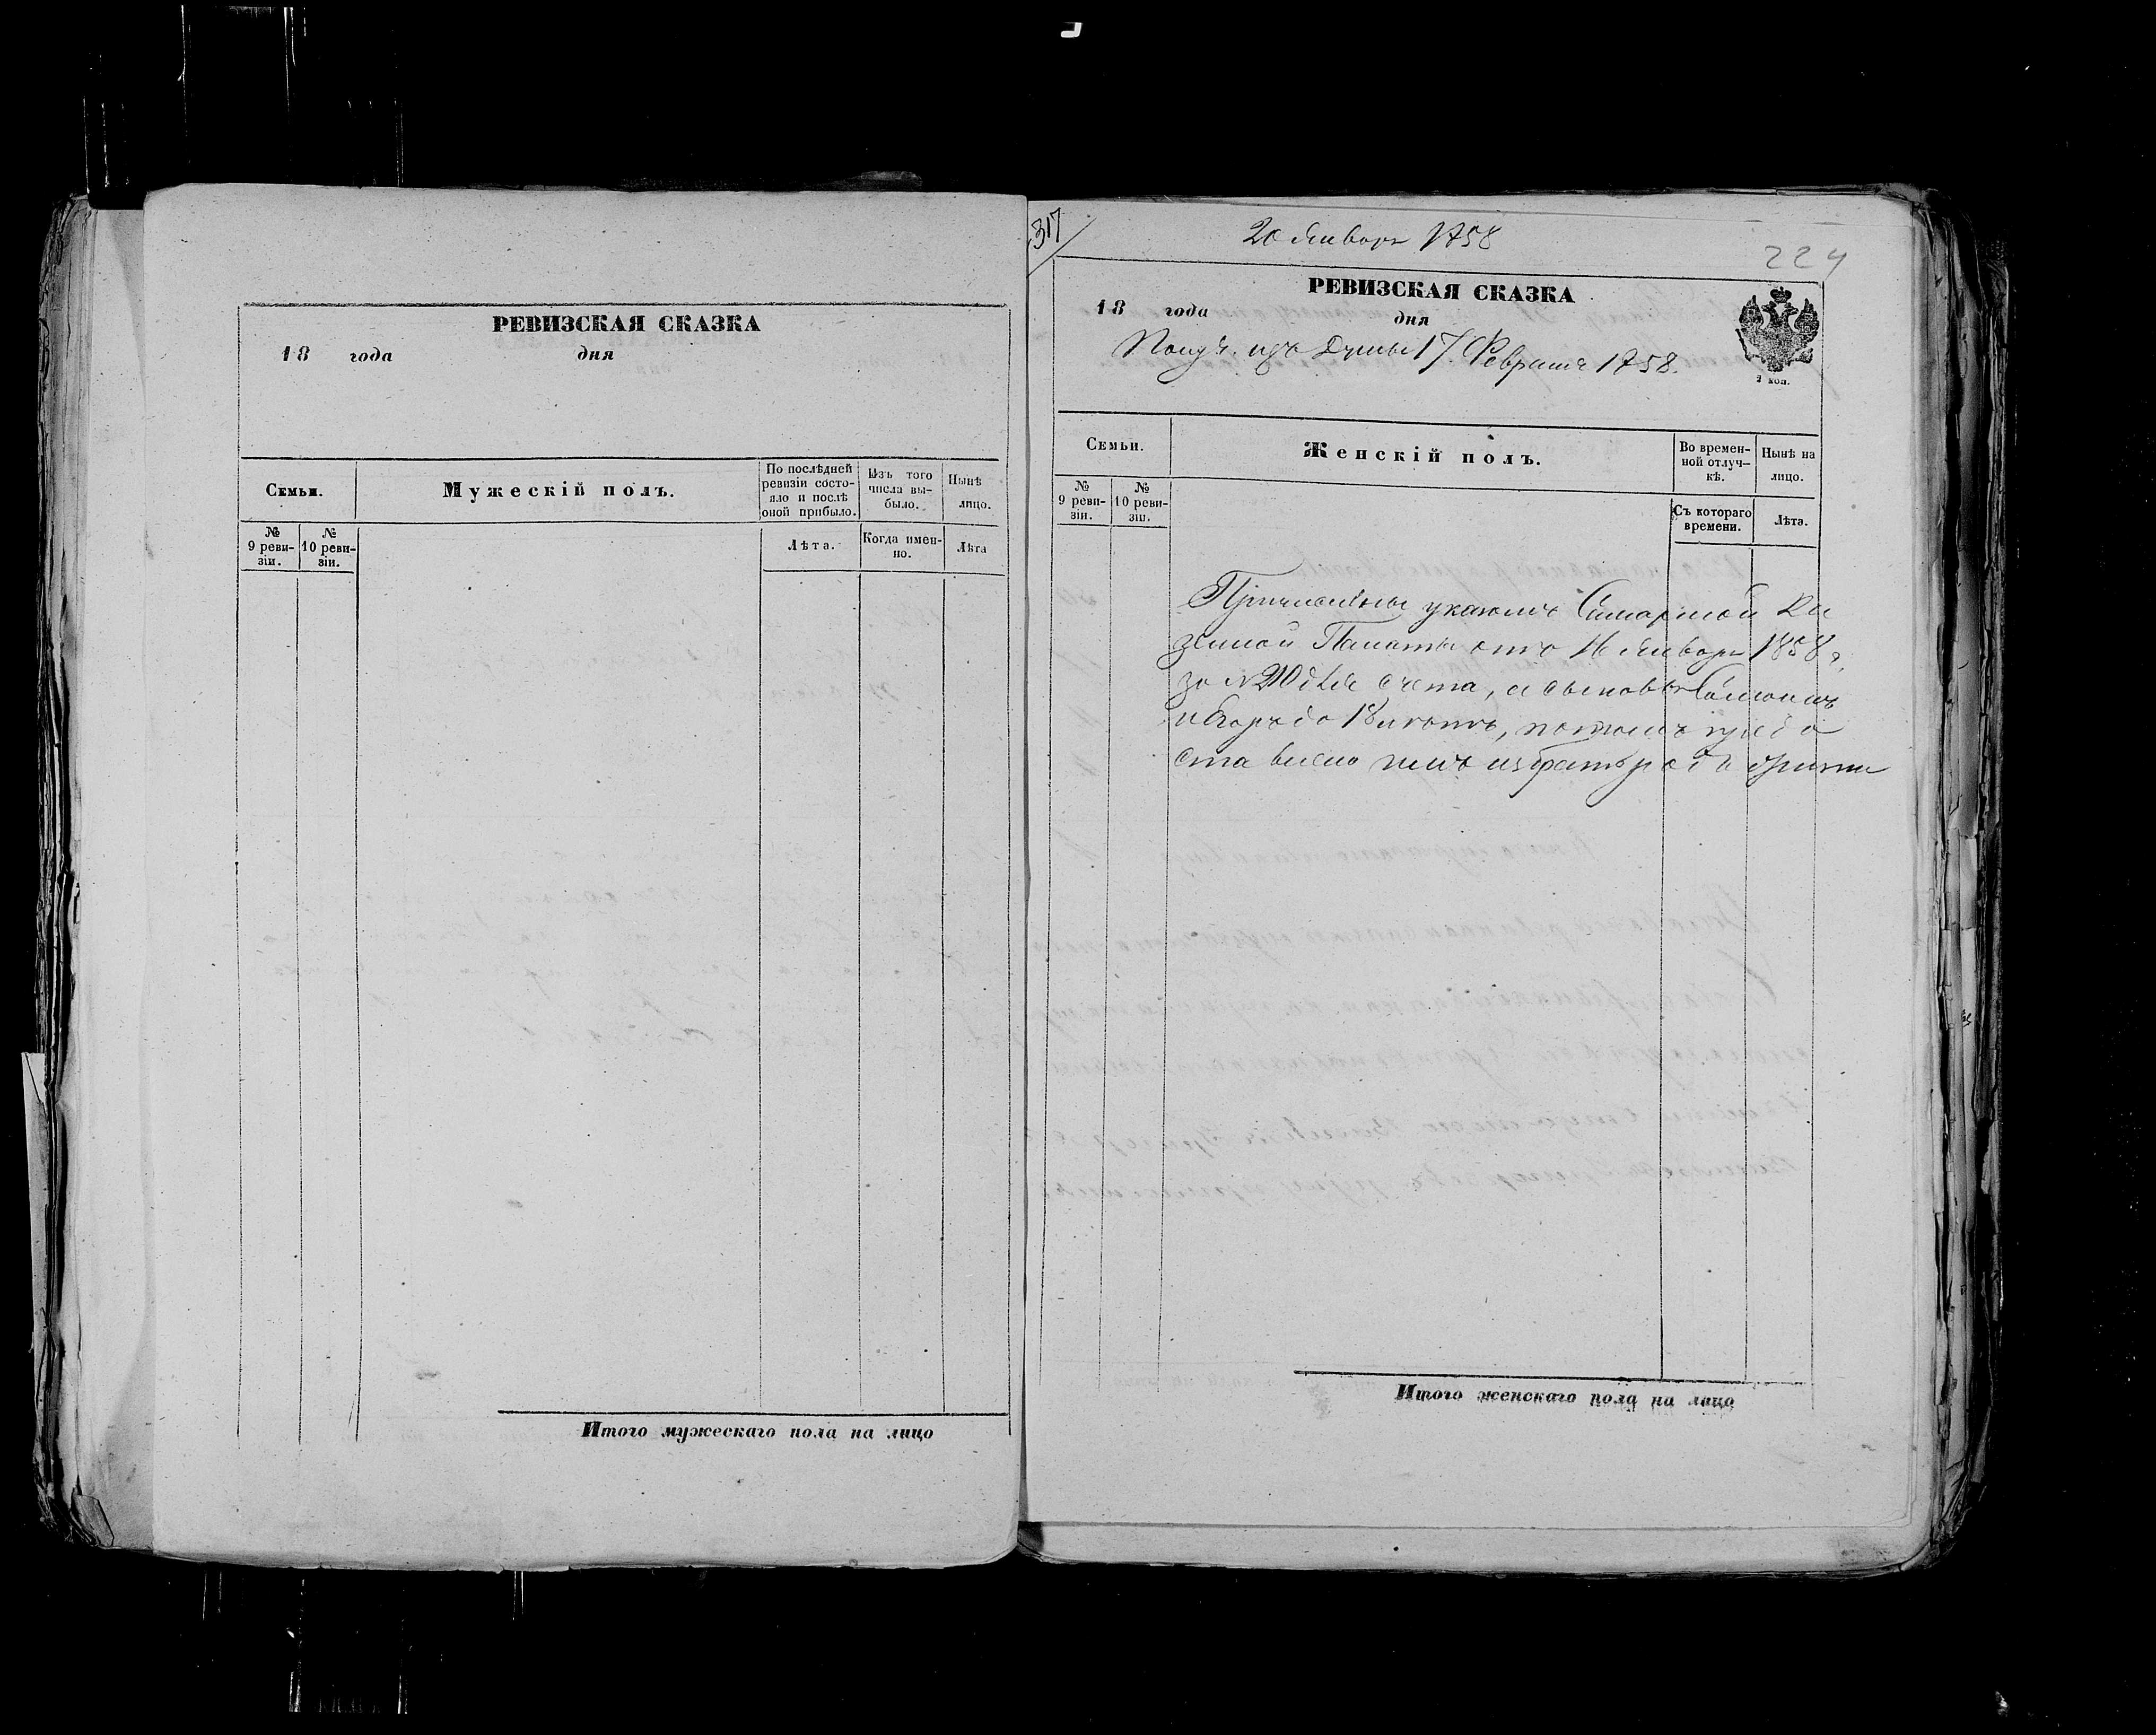 РЕВИЗСКАЯ СКАЗКА
18 года дня
Семьи.
Мужескій полъ.
По послѣдней ревизіи состо-
яло и послѣ
оной прибыло.
Изъ того
числа вы-
было.
Нынѣ
лицо.
№
9 реви-
зіи.
№
10 реви-
зіи.
Лѣта.
Когда имен-
но.
Лѣта
Итого мужескаго пола на лицо
317
20 Января 1858
224
РЕВИЗСКАЯ СКАЗКА
18 года дня
Получ. изъ Думы 17 Февраля 1858.
Семьи.
Женскій полъ.
Во времен-
ной отлуч-
кѣ.
Нынѣ на
лицо.
№
9 реви-
зіи.
№
10 реви-
зіи.
Съ котораго
времени.
Лѣта.
Причислены указомъ Самарской Ка
зенной Палаты отъ 16 Января 1858 г.
за № для счета, а сыновья
до 18 лѣтъ, потомъ предо
ставлено имъ избрать родъ жизни
Итого женскаго пола на лицо